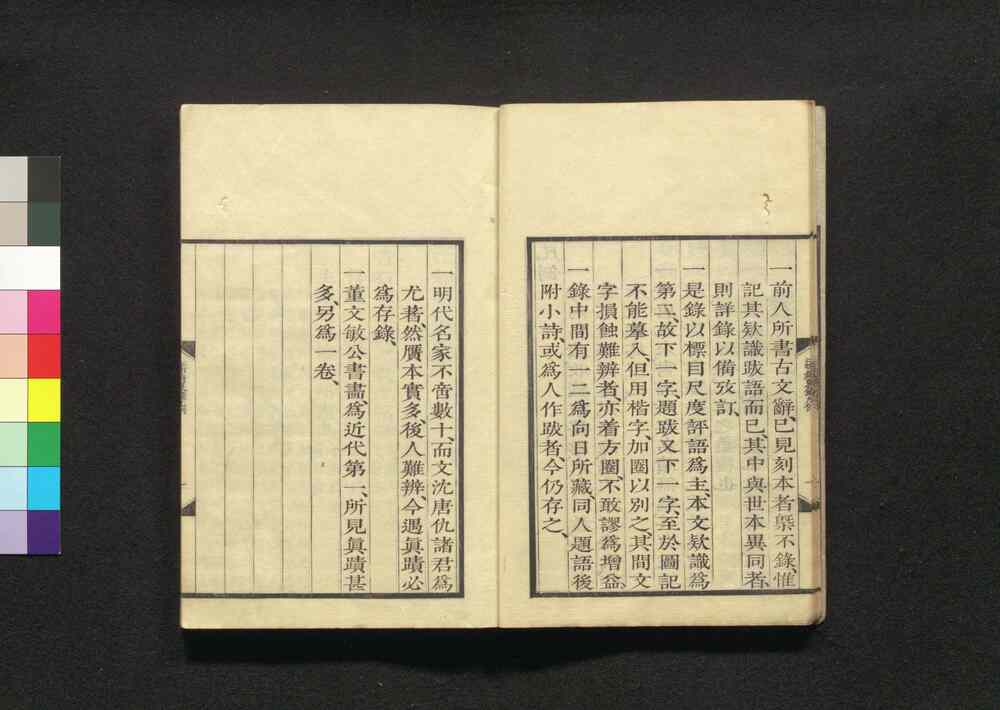 一前人所書古文辭、已見刻本者槩不錄、惟
記其欵識跋語而已、其中與世本異同者、
則詳錄以備攷訂、
一是錄以標目尺度評語爲主、本文欵識爲
第二、故下一字、題跋又下一字、至於圖記
不能摹入、但用楷字、加圈以別之、其間文
字損蝕難辨者、亦着方圈、不敢謬爲增益、
一錄中間有一二爲向日所藏、同人題語後
附小詩、或爲人作跋者、今仍存之、
一明代名家不啻數十、而文沈唐仇諸君爲
尤著、然贋本實多、後人難辨、今遇眞蹟必
爲存錄、
一董文敏公書畫、爲近代第一、所見眞蹟甚
多、另爲一卷、